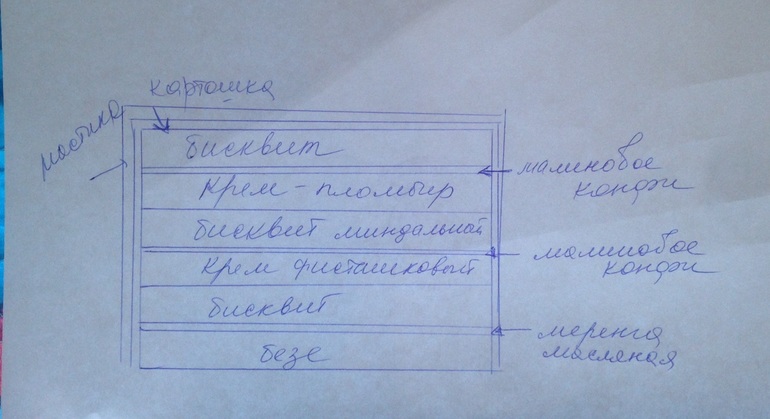 картошка
мастика
бисквит
малиновое
конфи
крем-пломбир
бисквит миндальный
малиновое
конфи
крем фисташковый
бисквит
меренга
масляная
безе